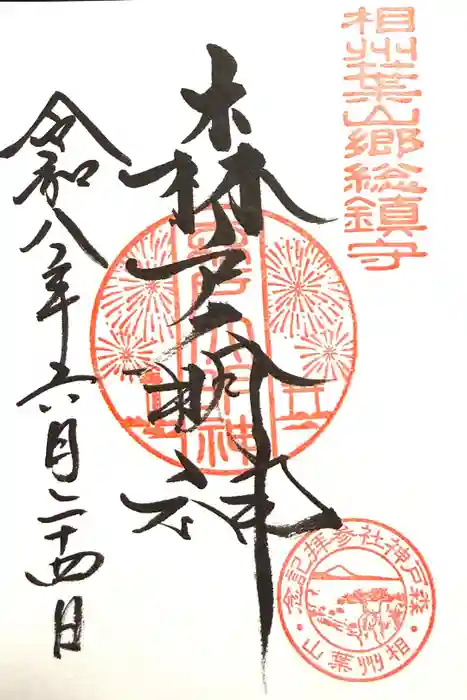 相州葉山郷総鎮守
森戸明神
令和八年六月二十四日
森戸神社参拝記念
相州葉山